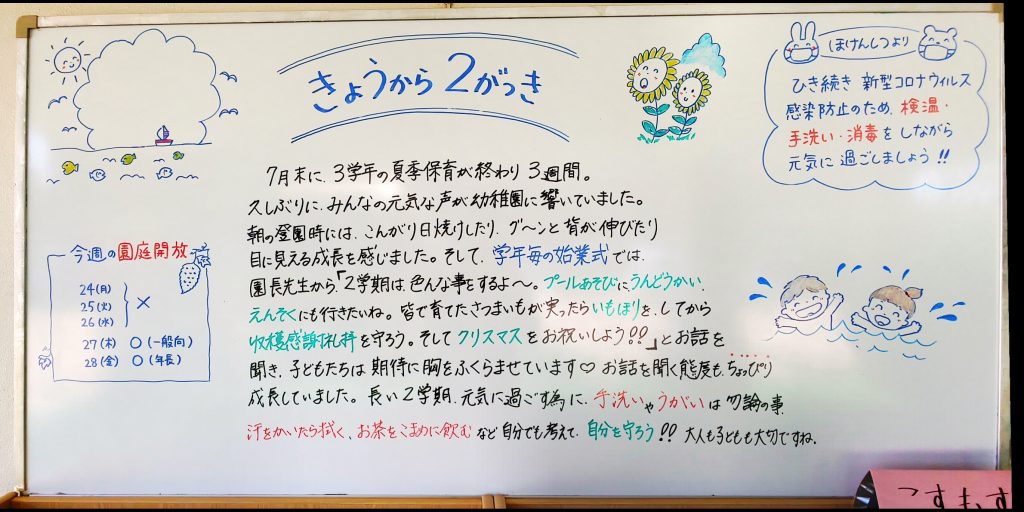 きょうから2がっき
ほけんしつより
ひき続き 新型コロナウィルス
感染防止のため、検温・
手洗い・消毒をしながら
元気に過ごしましょう!!
7月末に、3学年の夏季保育が終わり3週間。
久しぶりに、みんなの元気な声が幼稚園に響いていました。
朝の登園時には、こんがり日焼けしたり、グ〜ンと背が伸びたり
目に見える成長を感じました。そして、学年毎の始業式では、
園長先生から「2学期は、色んな事をするよ〜。プールあそびにうんどうかい、
えんそくにも行きたいね。皆で育てたさつまいもが実ったらいもほりを、してから
収穫感謝礼拝を守ろう。そしてクリスマスをお祝いしよう!!」とお話を
聞き、子どもたちは期待に胸をふくらませています♡ お話を聞く態度も、ちょっぴり
成長していました。長い2学期、元気に過ごす為に、手洗いやうがいは勿論の事、
汗をかいたら拭く、お茶をこまめに飲むなど自分でも考えて、自分を守ろう!! 大人も子どもも大切ですね。
今週の園庭開放
24(月)
25(火) ×
26(水)
27(木) ○(一般向)
28(金) ○(年長)
こすもす